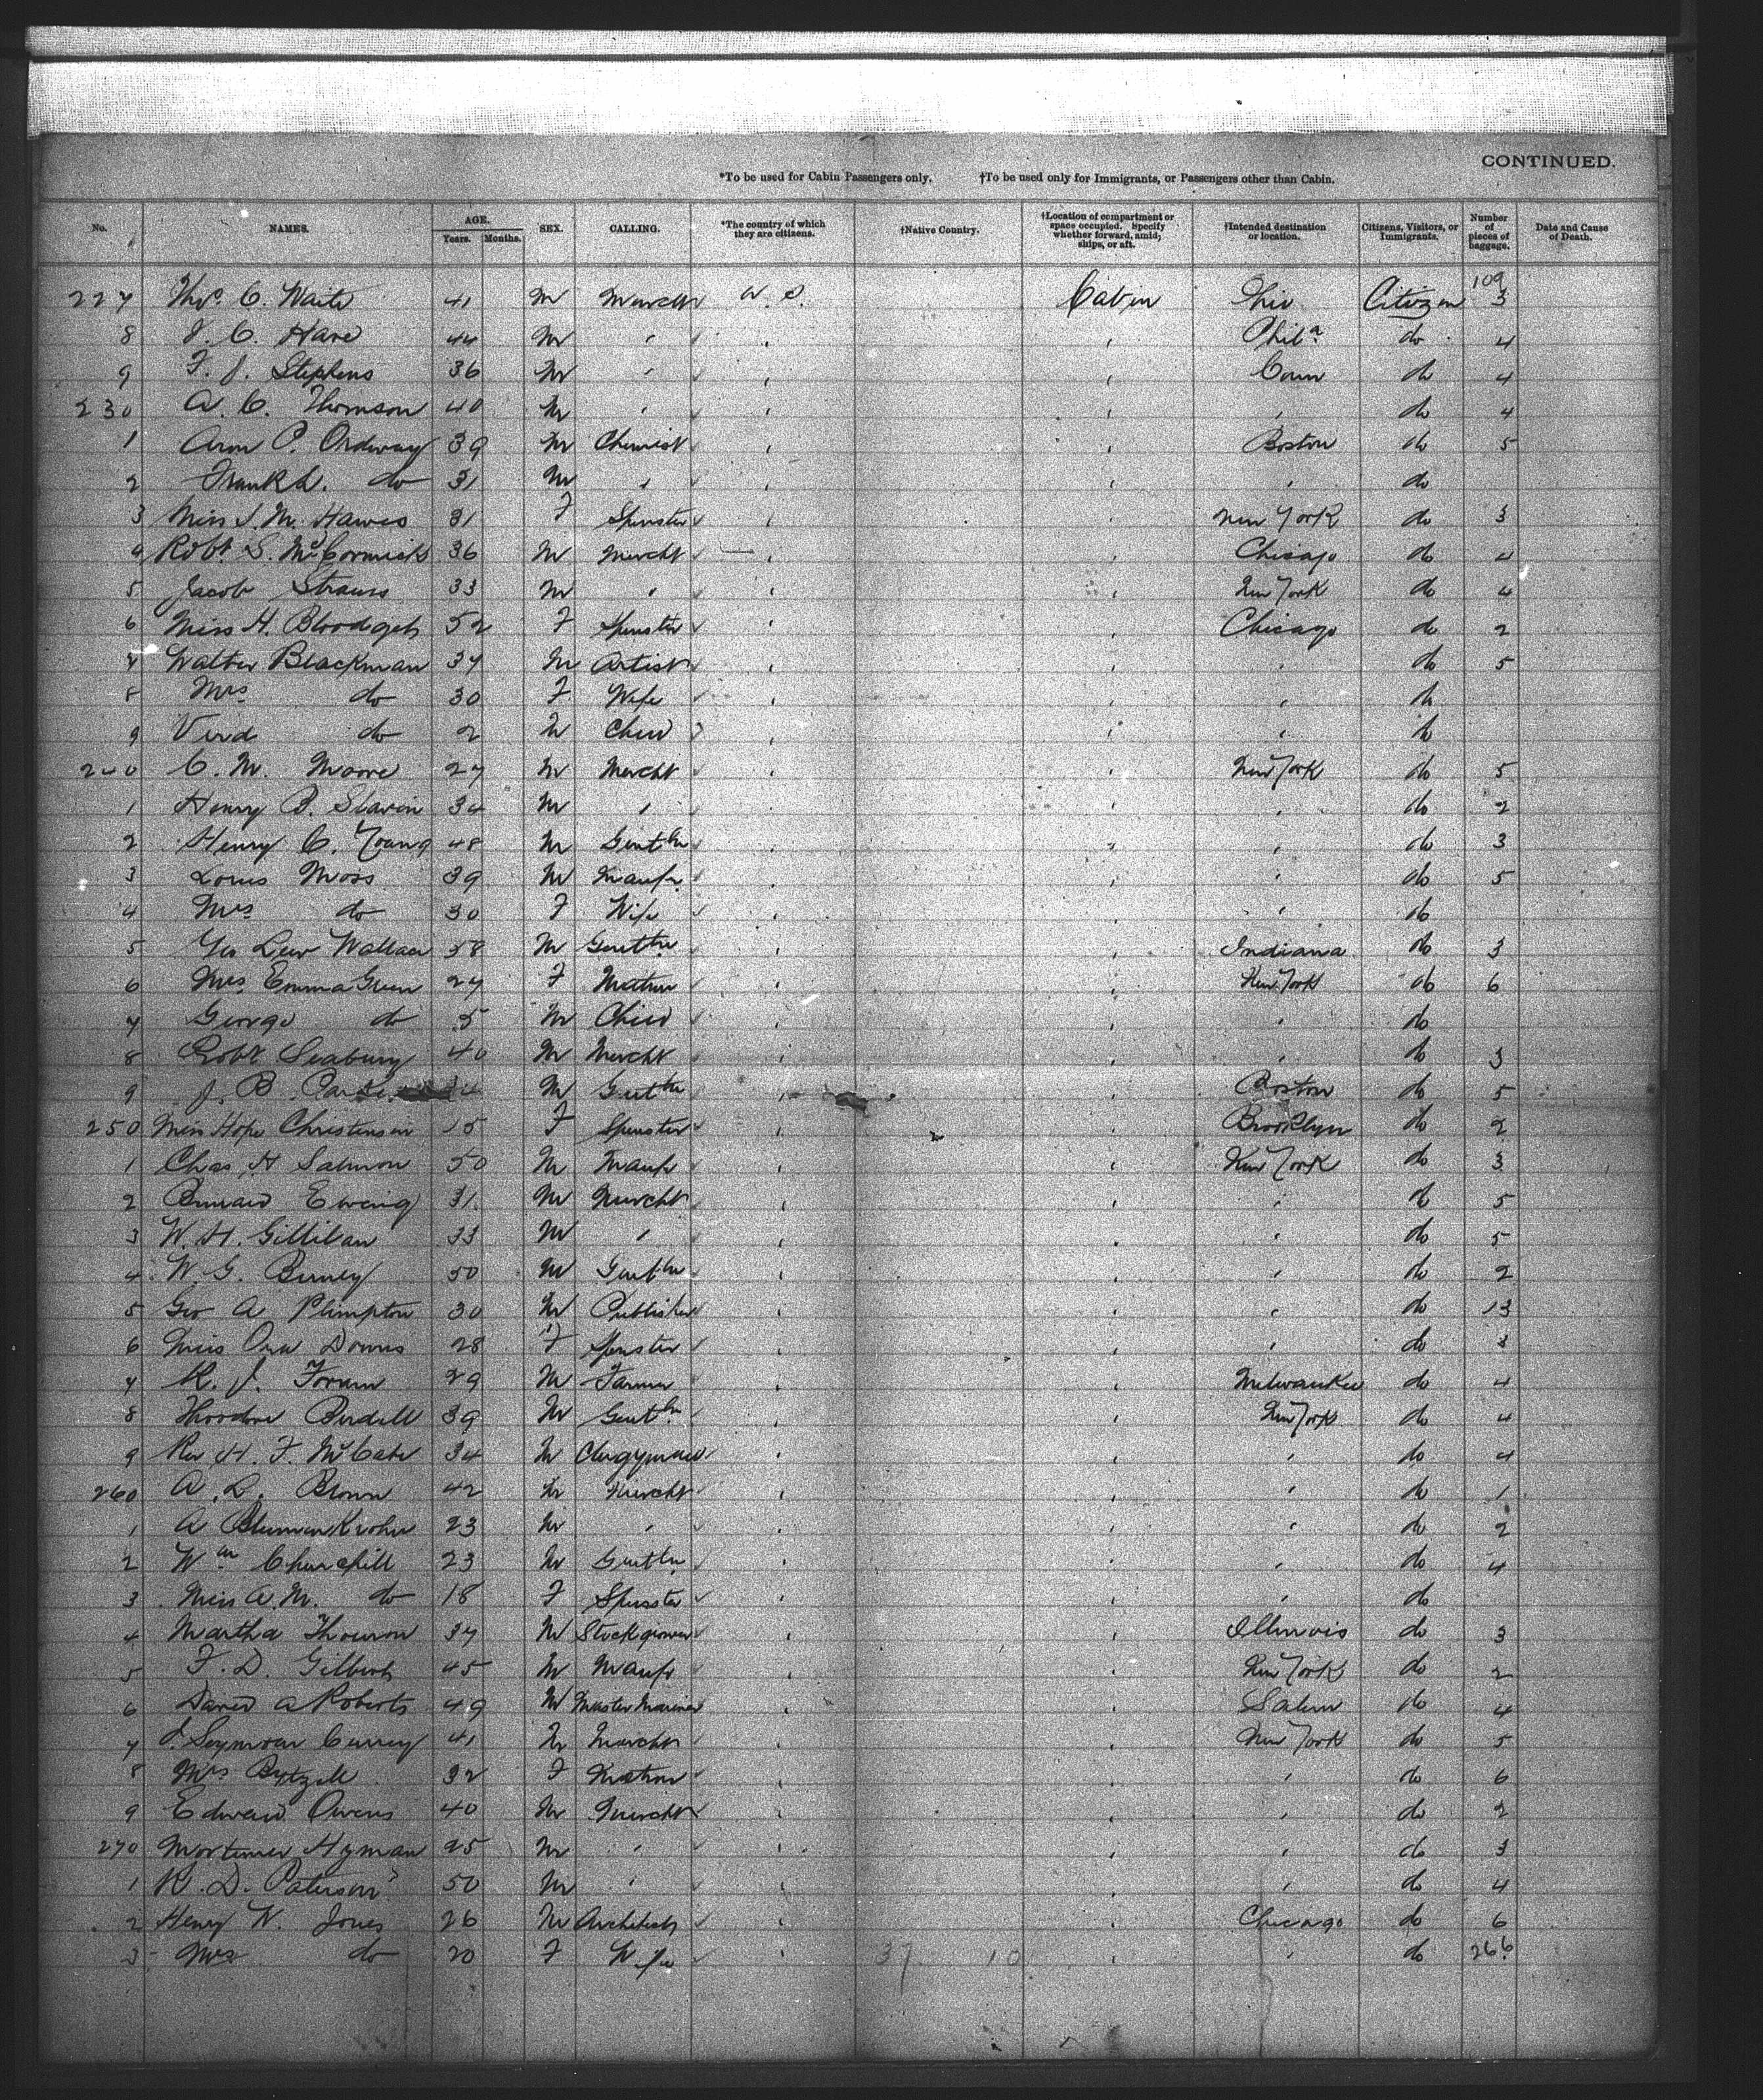 CONTINUED.
*To be used for Cabin Passengers only. †To be used only for Immigrants, or Passengers other than Cabin.
No. NAMES. AGE. Years. Months. SEX. CALLING. *The country of which they are citizens. †Native Country. †Location of compartment or space occupied. Specify whether forward, amidships, or aft. †Intended destination or location. Citizens, Visitors, or Immigrants. Number of pieces of baggage. Date and Cause of Death.
109
227 Thos. C. Waite 41 M Mercht U.S. Cabin Ohio Citizen 3
8 J. C. Hare 44 M " " " Phila do 4
9 F. J. Stephens 36 M " " " Conn do 4
230 A. C. Thomson 40 M " " " " do 4
1 Aron P. Ordway 39 M Chemist " " Boston do 5
2 Frank L. do 31 M " " " " do
3 Miss J. M. Hawes 31 F Spinster " " New York do 3
4 Robt. S. McCormick 36 M Mercht — " Chicago do 4
5 Jacob Strauss 33 M " " " New York do 4
6 Miss H. Bloodgett 52 F Spinster " " Chicago do 2
7 Walter Blackman 37 M Artist " " " do 5
8 Mrs do 30 F Wife " " " do
9 Verd do 2 M Child " " " do
240 C. M. Moore 27 M Mercht " " New York do 5
1 Henry B. Slavin 34 M " " " " do 2
2 Henry C. Young 48 M Gentln " " " do 3
3 Louis Moss 39 M Manfr. " " " do 5
4 Mrs do 30 F Wife " " " do
5 Lew Wallace 58 M Gentln " " Indiana do 3
6 Mrs Emma Green 27 F Matron " " New York do 6
7 George do 5 M Child " " " do
8 Robt Seabury 40 M Mercht " " " do 3
9 J. B. M Gentln " " Boston do 5
250 Miss Hope Christensen 15 F Spinster " " Brooklyn do 2
1 Chas H Salmon 50 M Manfr " " New York do 3
2 Ewing 31 M Mercht " " " do 5
3 W. H. Gillilan 33 M " " " " do 5
4 W. G. Burney 50 M Gentln " " " do 2
5 Geo A Plimpton 30 M Publisher " " " do 13
6 Miss Ora Downs 28 F Spinster " " " do 3
7 R. J. Foram 29 M Farmer " " Milwaukee do 4
8 Theodore Birdell 39 M Gentln " " New York do 4
9 Rev H. F. McCabe 34 M Clergyman " " " do 4
260 A. L. Brown 42 M Mercht " " " do 1
1 A Blumenkrohn 23 M " " " " do 2
2 Wm Churchill 23 M Gentln " " " do 4
3 Miss A. M. do 18 F Spinster " " " do
4 Martha Thouron 37 M Stockgrower " " Illinois do 3
5 F. D. Gilbert 45 M Manfr " " New York do 2
6 David A Roberts 49 M Master Mariner " " Salem do 4
7 J. Seymour Currey 41 M Mercht " " New York do 5
8 Mrs Bytzell 32 F Matron " " " do 6
9 Edward Owens 40 M Mercht " " " do 2
270 Mortimer Hyman 25 M " " " " do 3
1 R. D. Paterson 50 M " " " " do 4
2 Henry W. Jones 26 M Architect " " Chicago do 6
3 Mrs do 20 F Wife " 37 10 " " do 266